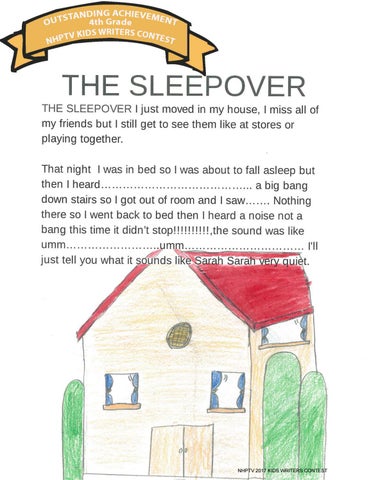 OUTSTANDING ACHIEVEMENT
4th Grade
NHPTV KIDS WRITERS CONTEST
THE SLEEPOVER
THE SLEEPOVER I just moved in my house, I miss all of
my friends but I still get to see them like at stores or
playing together.
That night  I was in bed so I was about to fall asleep but
then I heard…………………………………... a big bang
down stairs so I got out of room and I saw……. Nothing
there so I went back to bed then I heard a noise not a
bang this time it didn’t stop!!!!!!!!!!,the sound was like
umm……………………..umm………………………… I'll
just tell you what it sounds like Sarah Sarah very quiet.
NHPTV 2017 KIDS WRITERS CONTEST